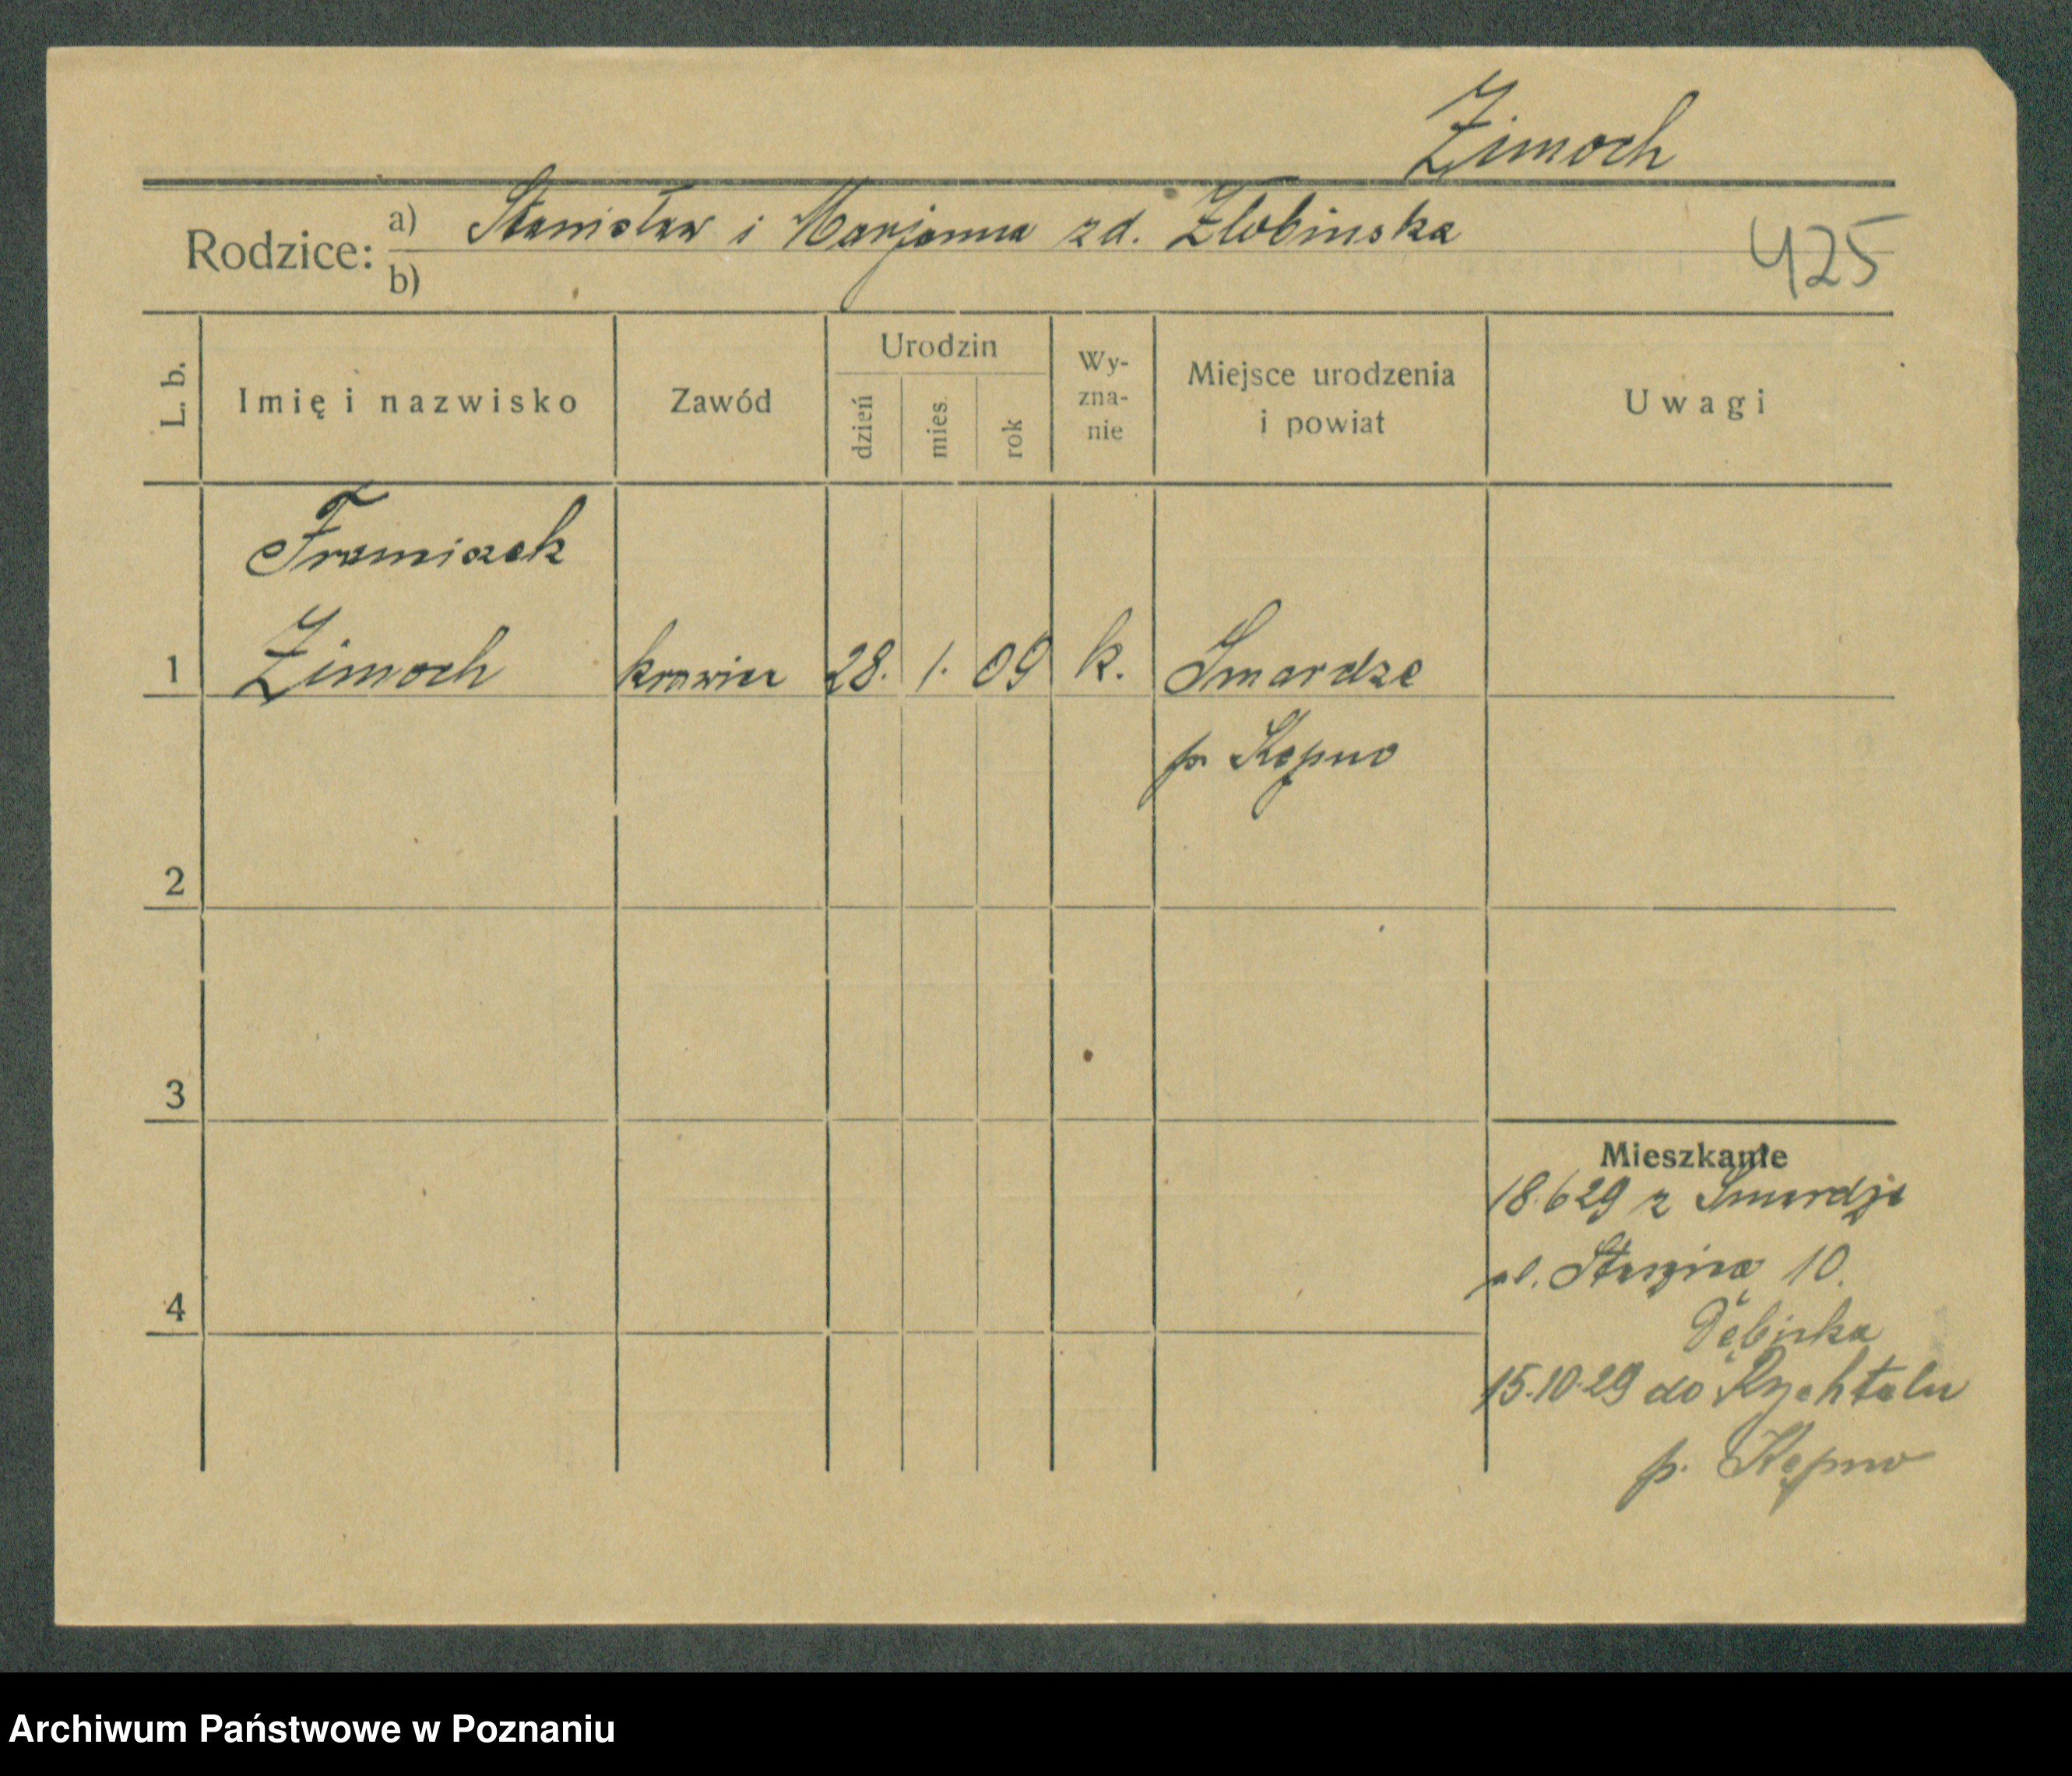 Zimoch
Rodzice: a) Stanisław i Marjanna zd. Złobinska
b)
425
L. b.
Imię i nazwisko
Zawód
Urodzin
dzień
mies.
rok
Wy-
zna-
nie
Miejsce urodzenia
i powiat
Uwagi
Franciszek
1 Zimoch krawiec 28. 1. 09 k. Smardze
p. Kępno
2
3
4
Mieszkanie
18.6 29 z Smardze
ul. Staszica 10.
15.10.29 do Rychtalu
p. Kępno
Archiwum Państwowe w Poznaniu